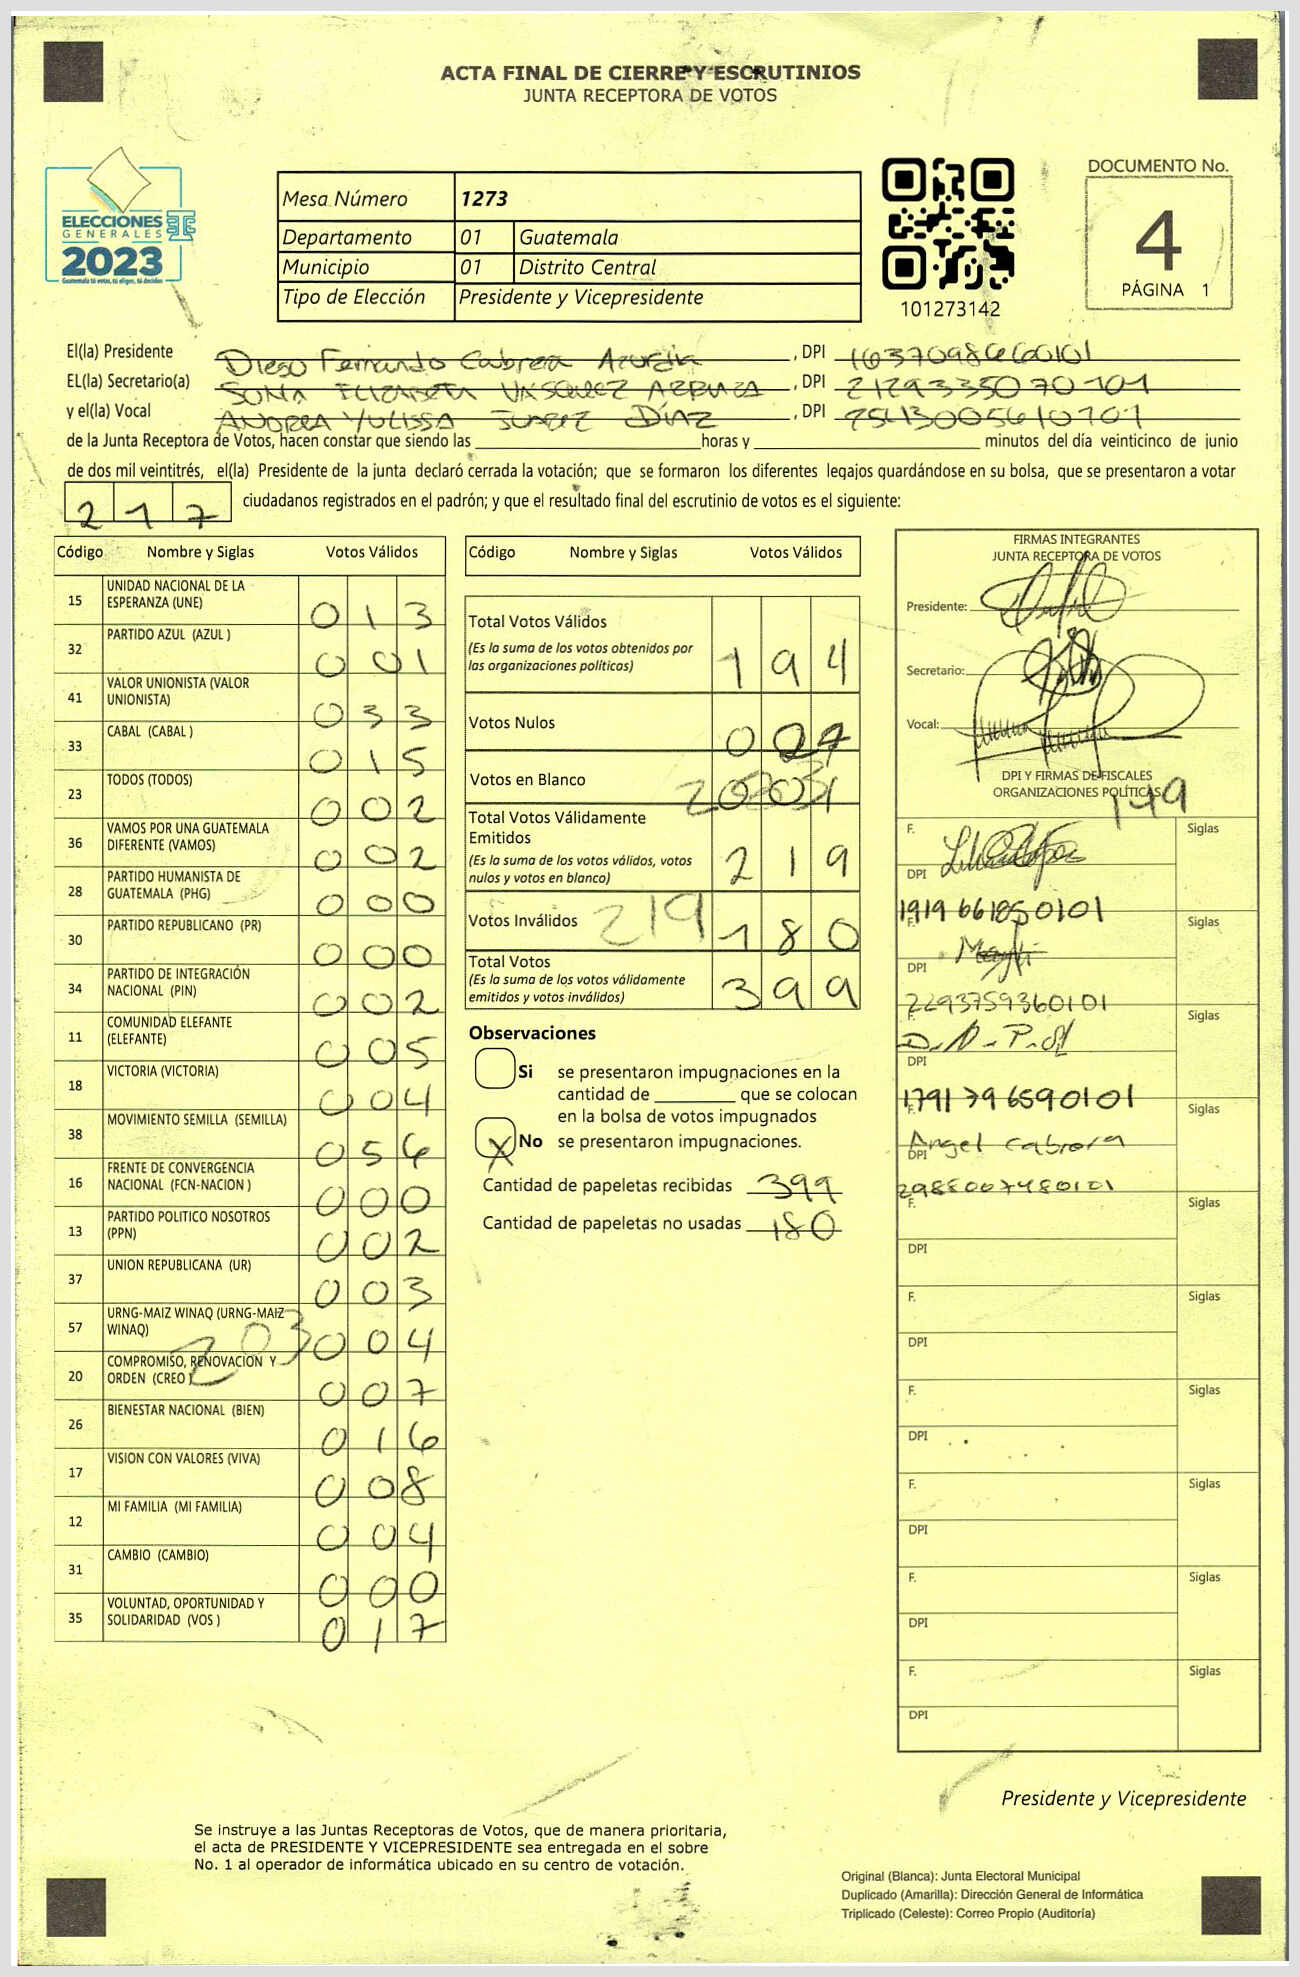 ACTA FINAL DE CIERRE Y ESCRUTINIOS
JUNTA RECEPTORA DE VOTOS
ELECCIONES
GENERALES
2023
Guatemala tú votas, tú eliges, tú decides
Mesa Número 1273
Departamento 01 Guatemala
Municipio 01 Distrito Central
Tipo de Elección Presidente y Vicepresidente
101273142
DOCUMENTO No.
4
PÁGINA 1
El(la) Presidente Diego Fernando Cabrera Azurdia, DPI
EL(la) Secretario(a) SONIA ELIZABETA VASQUEZ, DPI 2129335070101
y el(la) Vocal ANDREA YULISSA JUAREZ DÍAZ, DPI 2541300561 0101
de la Junta Receptora de Votos, hacen constar que siendo las horas y minutos del día veinticinco de junio
de dos mil veintitrés, el(la) Presidente de la junta declaró cerrada la votación; que se formaron los diferentes legajos guardándose en su bolsa, que se presentaron a votar
217 ciudadanos registrados en el padrón; y que el resultado final del escrutinio de votos es el siguiente:
Código Nombre y Siglas Votos Válidos
15 UNIDAD NACIONAL DE LA ESPERANZA (UNE) 013
32 PARTIDO AZUL (AZUL ) 001
41 VALOR UNIONISTA (VALOR UNIONISTA) 033
33 CABAL (CABAL ) 015
23 TODOS (TODOS) 002
36 VAMOS POR UNA GUATEMALA DIFERENTE (VAMOS) 002
28 PARTIDO HUMANISTA DE GUATEMALA (PHG) 000
30 PARTIDO REPUBLICANO (PR) 000
34 PARTIDO DE INTEGRACIÓN NACIONAL (PIN) 002
11 COMUNIDAD ELEFANTE (ELEFANTE) 005
18 VICTORIA (VICTORIA) 004
38 MOVIMIENTO SEMILLA (SEMILLA) 056
16 FRENTE DE CONVERGENCIA NACIONAL (FCN-NACION ) 000
13 PARTIDO POLITICO NOSOTROS (PPN) 002
37 UNION REPUBLICANA (UR) 003
57 URNG-MAIZ WINAQ (URNG-MAIZ WINAQ) 004
203
20 COMPROMISO, RENOVACION Y ORDEN (CREO ) 007
26 BIENESTAR NACIONAL (BIEN) 016
17 VISION CON VALORES (VIVA) 008
12 MI FAMILIA (MI FAMILIA) 004
31 CAMBIO (CAMBIO) 000
35 VOLUNTAD, OPORTUNIDAD Y SOLIDARIDAD (VOS ) 017
Código Nombre y Siglas Votos Válidos
Total Votos Válidos 194
(Es la suma de los votos obtenidos por
las organizaciones políticos)
Votos Nulos
Votos en Blanco
Total Votos Válidamente
Emitidos 219
(Es la suma de los votos válidos, votos
nulos y votos en blanco)
Votos Inválidos 219 180
Total Votos 399
(Es la suma de los votos válidamente
emitidos y votos inválidos)
Observaciones
Si se presentaron impugnaciones en la
cantidad de ________ que se colocan
en la bolsa de votos impugnados
X No se presentaron impugnaciones.
Cantidad de papeletas recibidas 399
Cantidad de papeletas no usadas 180
FIRMAS INTEGRANTES
JUNTA RECEPTORA DE VOTOS
Presidente:
Secretario:
Vocal:
DPI Y FIRMAS DE FISCALES
ORGANIZACIONES POLÍTICAS
149
F. Siglas
DPI
F. Siglas
DPI
2293759360101
F. D.N.P.
Siglas
DPI
1791796590101
F. Angel Cabrera Siglas
DPI
2988007480101
F. Siglas
DPI
F. Siglas
DPI
F. Siglas
DPI
F. Siglas
DPI
F. Siglas
DPI
F. Siglas
DPI
Presidente y Vicepresidente
Se instruye a las Juntas Receptoras de Votos, que de manera prioritaria,
el acta de PRESIDENTE Y VICEPRESIDENTE sea entregada en el sobre
No. 1 al operador de informática ubicado en su centro de votación.
Original (Blanca): Junta Electoral Municipal
Duplicado (Amarilla): Dirección General de Informática
Triplicado (Celeste): Correo Propio (Auditoría)